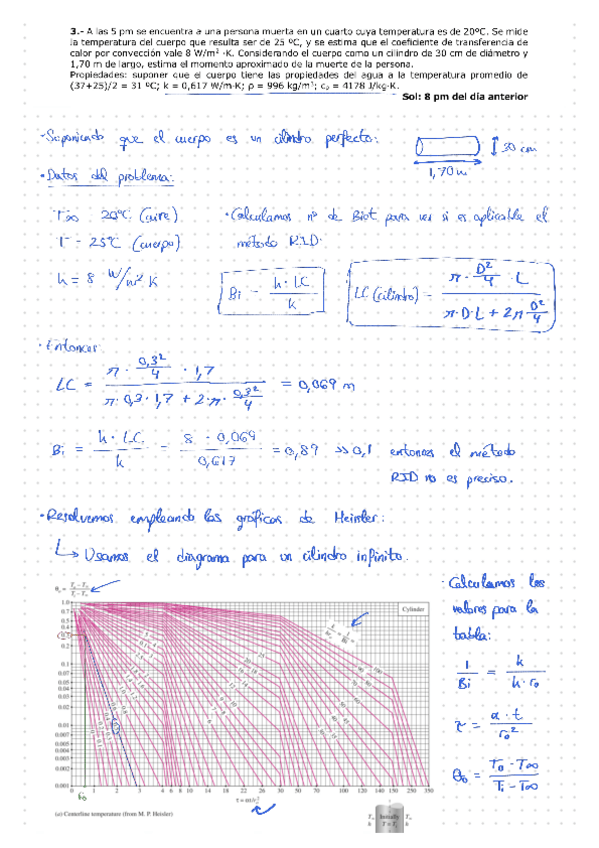 3.- A las 5 pm se encuentra a una persona muerta en un cuarto cuya temperatura es de 20ºC. Se mide
la temperatura del cuerpo que resulta ser de 25 ºC, y se estima que el coeficiente de transferencia de
calor por convección vale 8 W/m² ·K. Considerando el cuerpo como un cilindro de 30 cm de diámetro y
1,70 m de largo, estima el momento aproximado de la muerte de la persona.
Propiedades: suponer que el cuerpo tiene las propiedades del agua a la temperatura promedio de
(37+25)/2 = 31 ºC; k = 0,617 W/m·K; ρ = 996 kg/m³; cₚ = 4178 J/kg·K.
Sol: 8 pm del día anterior
· Suponiendo que el cuerpo es un cilindro perfecto:
30 cm
1,70 m
· Datos del problema:
T∞ = 20ºC (aire)
T = 25ºC (cuerpo)
h = 8 W/m² K
· Calculamos nº de Biot para ver si es aplicable el
método RID.
Bi = h · LC / k
LC (cilindro) = π · D²/4 · L / π · D · L + 2π D²/4
· Entonces:
LC = π · 0,3²/4 · 1,7 / π · 0,3 · 1,7 + 2 · π · 0,3²/4 = 0,069 m
Bi = h · LC / k = 8 · 0,069 / 0,617 = 0,89 >> 0,1 entonces el método
RID no es preciso.
· Resolvemos empleando las gráficas de Heisler:
↳ Usamos el diagrama para un cilindro infinito.
· Calculamos los
valores para la
tabla:
1/Bi = k / h · r₀
τ = α · t / r₀²
θ₀ = T₀ - T∞ / Ti - T∞
Cylinder
τ = αt/r₀²
(a) Centerline temperature (from M. P. Heisler)
T∞ h
Initially
T = Tᵢ
T∞ h